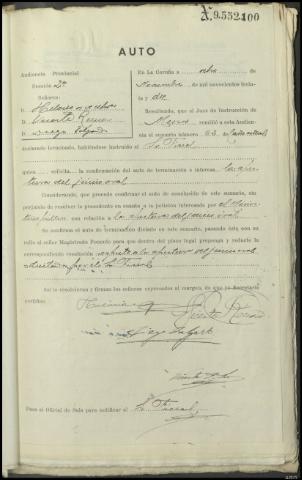 A.9.552.100
AUTO
Audiencia Provincial
Sección 2ª
Señores:
D.
D. Vicente
D. Diego Salgado
En La Coruña a ocho de
Noviembre de mil novecientos
y diez
Resultando, que el Juez de Instrucción de
remitió a esta Audiencia
el sumario número 63 de
declarado terminado, habiéndose instruído al Sr. Fiscal
quien solicita la confirmación del auto de terminación e interesa la apertura del juicio oral
Considerando, que procede confirmar el auto de conclusión de este sumario, sin
perjuicio de resolver lo procedente en cuanto a la petición interesada por el Ministerio
público con relación a la apertura del juicio oral
Se confirma el auto de terminación dictado en este sumario, pasando éste con su
rollo al señor Magistrado Ponente para que dentro del plazo legal proponga y redacte la
correspondiente resolución respecto a la apertura del juicio oral
solicitada por el Sr. Fiscal
Así lo resolvieron y firman los señores expresados al margen, de que yo Secretario
certifico.
Diego Salgado
Pase al Oficial de Sala para notificar al Sr. Fiscal